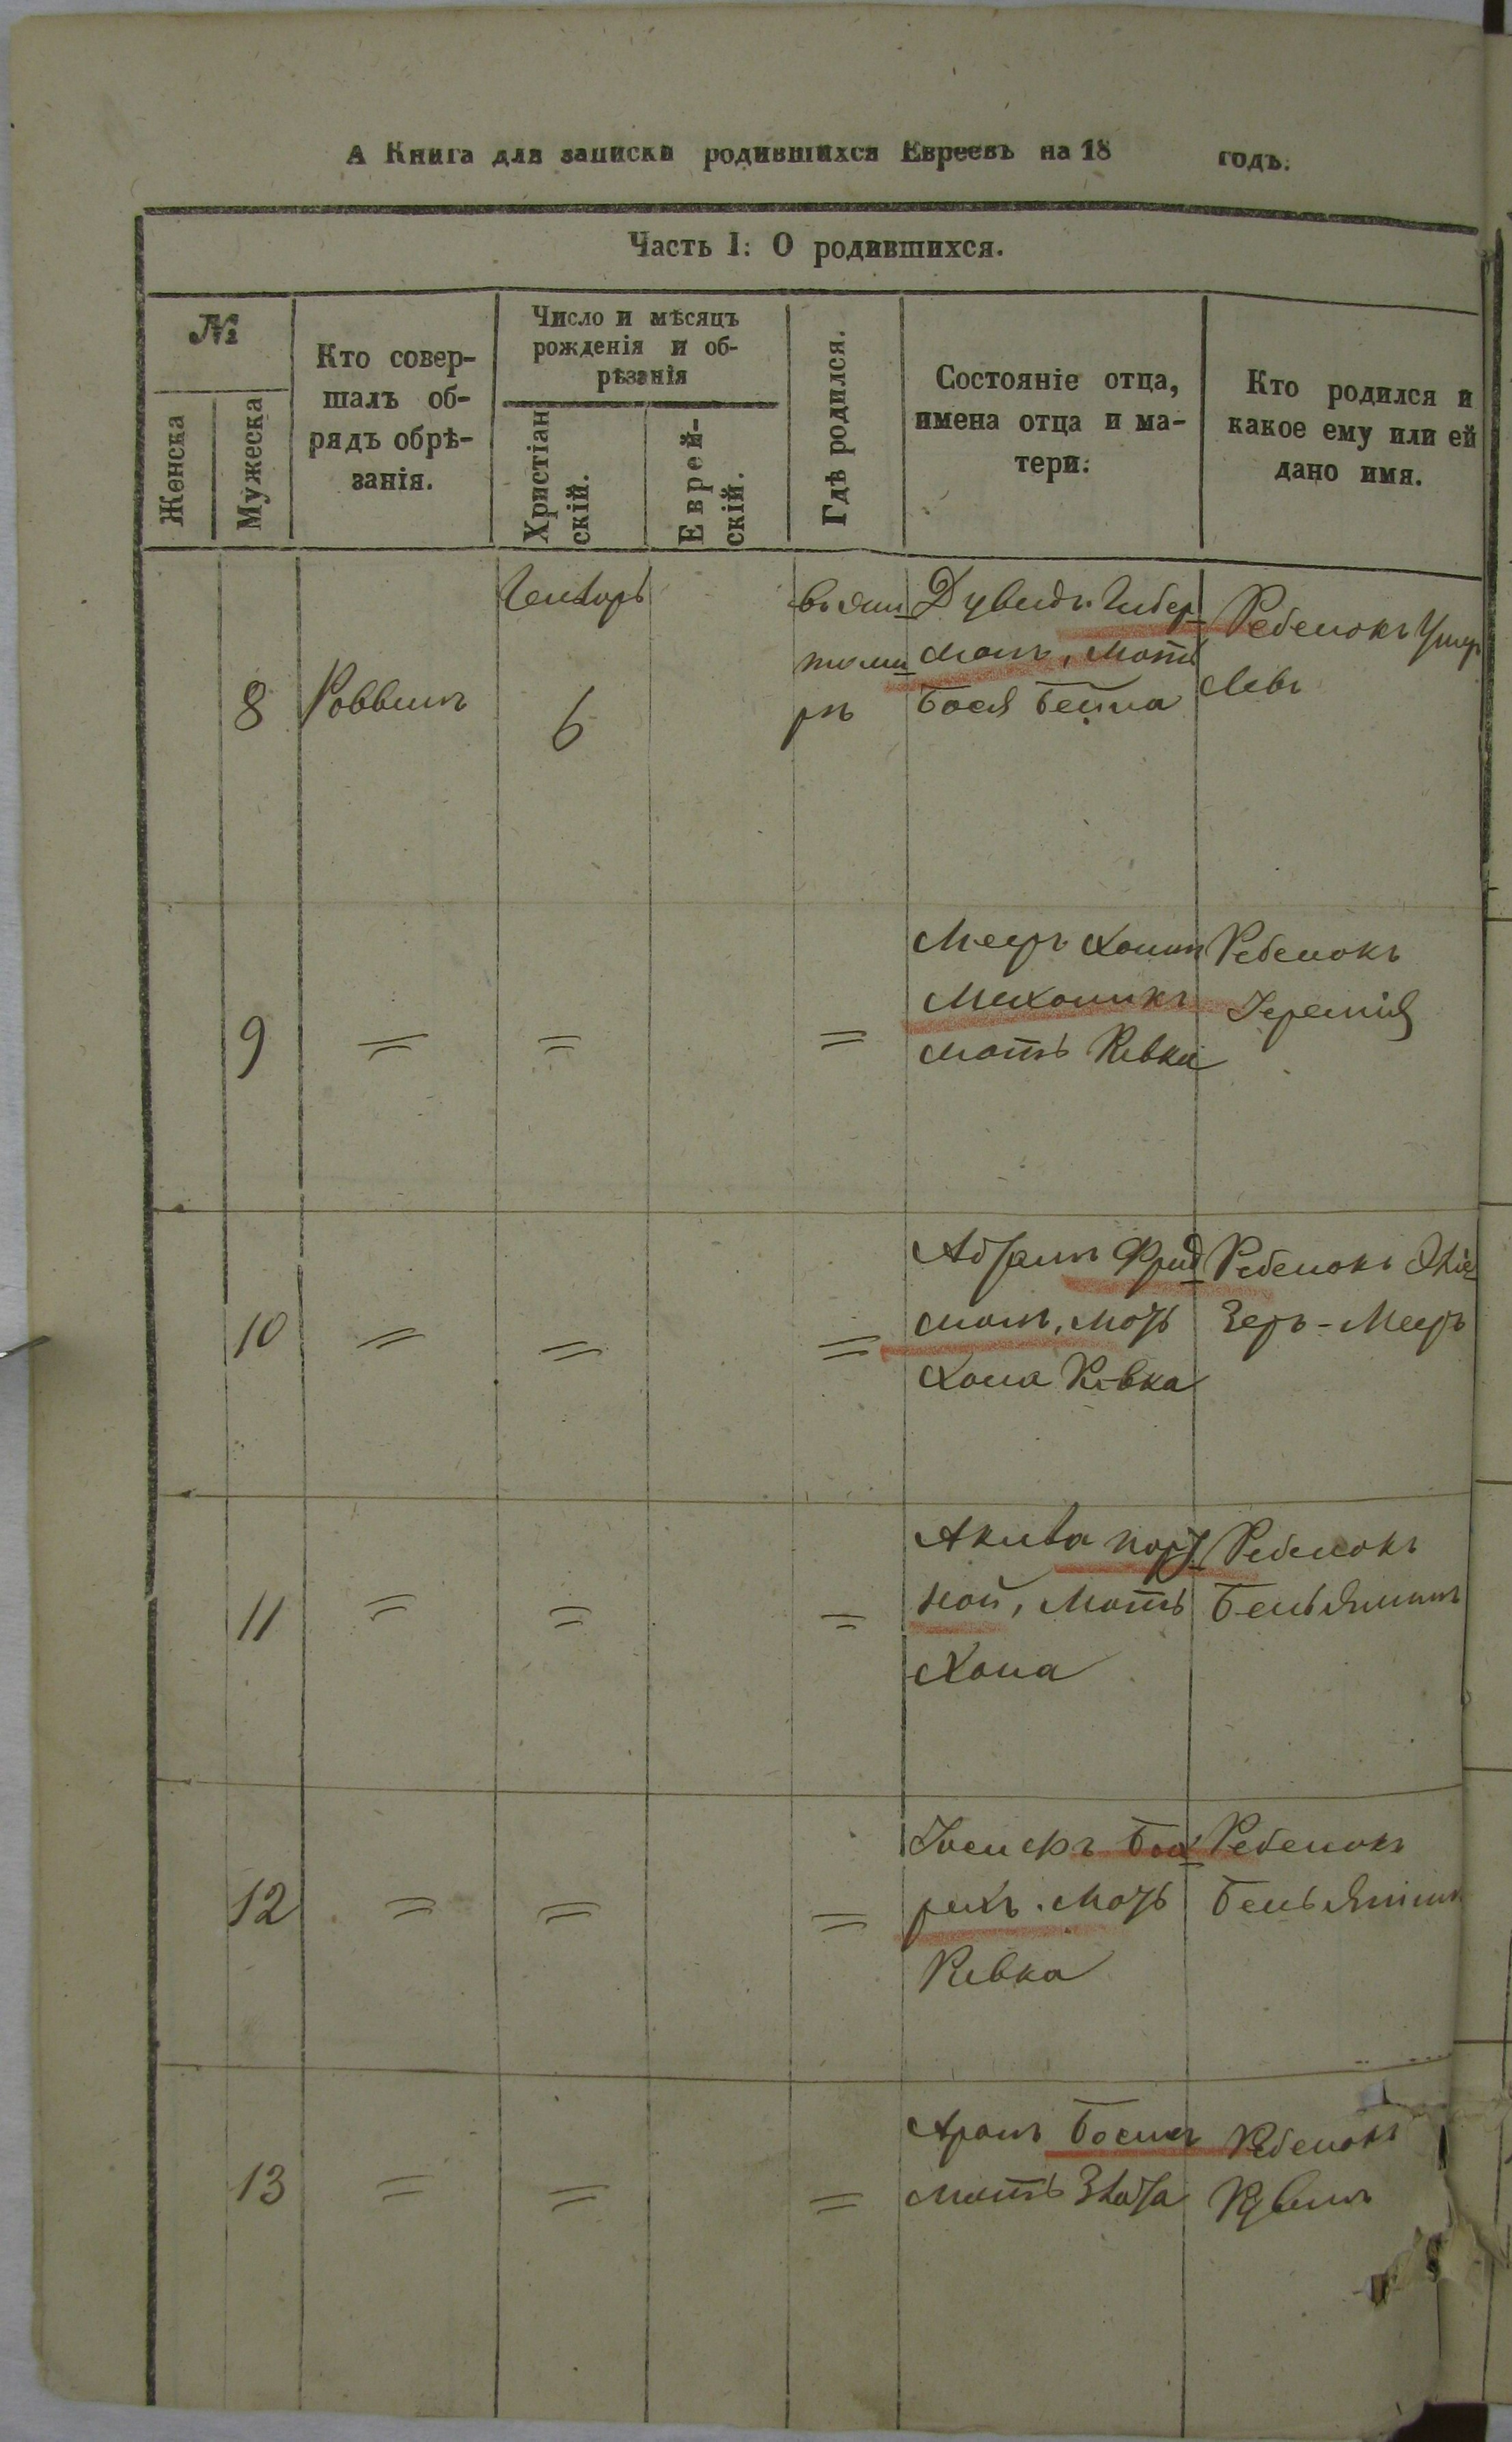 А Книга для записки родившихся Евреевъ на 18 годъ.
Часть I: О родившихся.
№
Женска
Мужеска
Кто совер-
шалъ об-
рядъ обрѣ-
занія.
Число и мѣсяцъ
рожденія и об-
рѣзанія
Христіан
скій.
Еврей-
скій.
Гдѣ родился.
Состояніе отца,
имена отца и ма-
тери:
Кто родился и
какое ему или ей
дано имя.
8
Раввинъ
6
въ
Дувидъ Гибер-
манъ, мать
Бася Бейла
Ребенокъ
Левъ
9
=
=
=
Мееръ Хаимъ
мать Ривка
Ребенокъ
Іеремія
10
=
=
=
Абрамъ Фрид-
манъ, мать
Хана Ривка
Ребенокъ Эліе-
зеръ-Мееръ
11
=
=
=
Акива Порт-
ной, мать
Хана
Ребенокъ
Беньяминъ
12
=
=
=
Іосифъ Бок-
мать
Ривка
Ребенокъ
Беньяминъ
13
=
=
=
Аронъ
мать Злата
Ребенокъ
Рувинъ